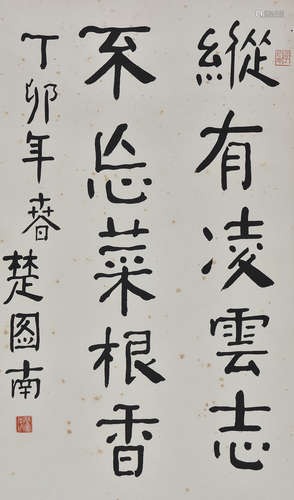 縱有凌雲志
不忘菜根香
丁卯年春楚图南